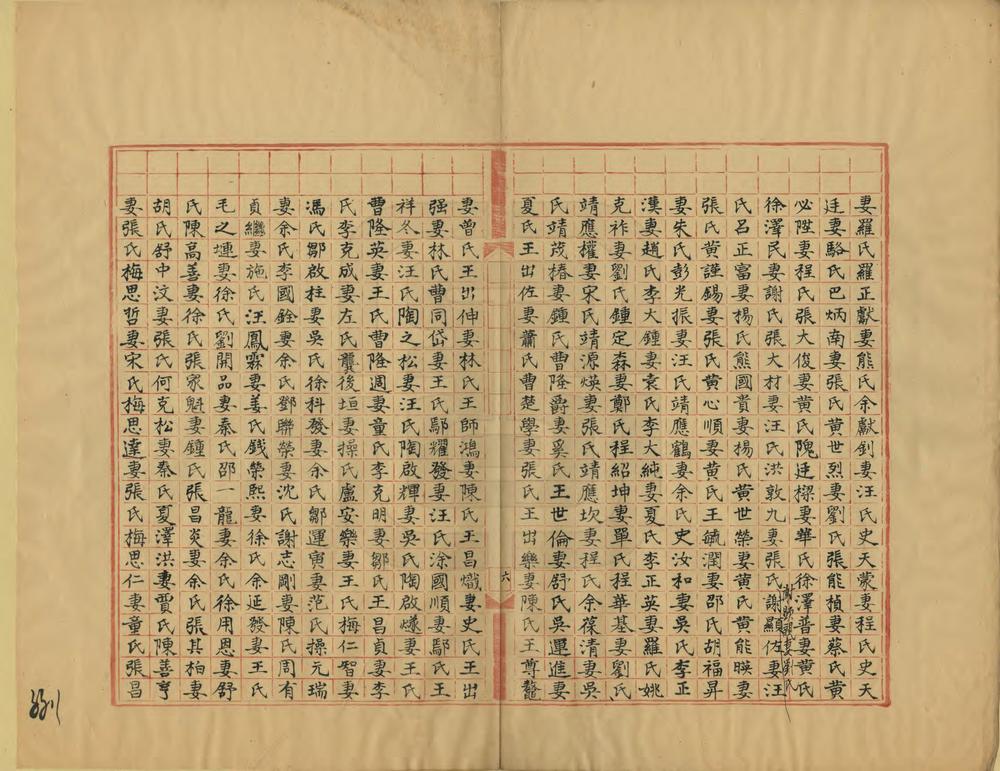 妻羅氏羅正獻妻熊氏余獻釗妻汪氏史天蒙妻程氏史天
廷妻駱氏巴炳南妻張氏黃世烈妻劉氏張能楨妻蔡氏黃
必陞妻程氏張大俊妻黃氏隗廷樑妻華氏徐澤普妻黃氏
徐澤民妻謝氏張大材妻汪氏洪敦九妻張氏謝顯佐妻汪
氏呂正富妻楊氏熊國賞妻楊氏黃世榮妻黃氏黃能暎妻
張氏黃謹錫妻張氏黃心順妻黃氏王毓潤妻邵氏胡福昇
妻朱氏彭光振妻汪氏靖應鶴妻余氏史汝和妻吳氏李正
漢妻趙氏李大鍾妻袁氏李大純妻夏氏李正英妻羅氏姚
克祚妻劉氏鍾定森妻鄭氏程紹坤妻單氏程華基妻劉氏
靖應權妻宋氏靖源煐妻張氏靖應坎妻程氏余葆清妻吳
氏靖茂椿妻鍾氏曹隆爵妻奚氏王世倫妻舒氏吳運進妻
夏氏王出佐妻蕭氏曹楚學妻張氏王出樂妻陳氏王尊鼇
六
妻曾氏王出伸妻林氏王師鴻妻陳氏王昌熾妻史氏王出
强妻林氏曹同岱妻王氏鄢耀發妻汪氏涂國順妻鄢氏王
祥冬妻汪氏陶之松妻汪氏陶啟輝妻吳氏陶啟爕妻王氏
曹隆英妻王氏曹隆週妻童氏李克明妻鄒氏王昌貞妻李
氏李克成妻左氏龔後垣妻操氏盧安樂妻王氏梅仁智妻
馮氏鄒啟柱妻吳氏徐科發妻余氏鄒運寅妻范氏操元瑞
妻余氏李國銓妻余氏鄧聯榮妻沈氏謝志剛妻陳氏周有
貞繼妻施氏汪鳳霖妻姜氏錢榮熙妻徐氏余延發妻王氏
毛之㻏妻徐氏劉開品妻秦氏邵一龍妻余氏徐用恩妻舒
氏陳高善妻徐氏張家魁妻鍾氏張昌炎妻余氏張其柏妻
胡氏舒中汶妻張氏何克松妻秦氏夏澤洪妻賈氏陳善亨
妻張氏梅思哲妻宋氏梅思達妻張氏梅思仁妻童氏張昌